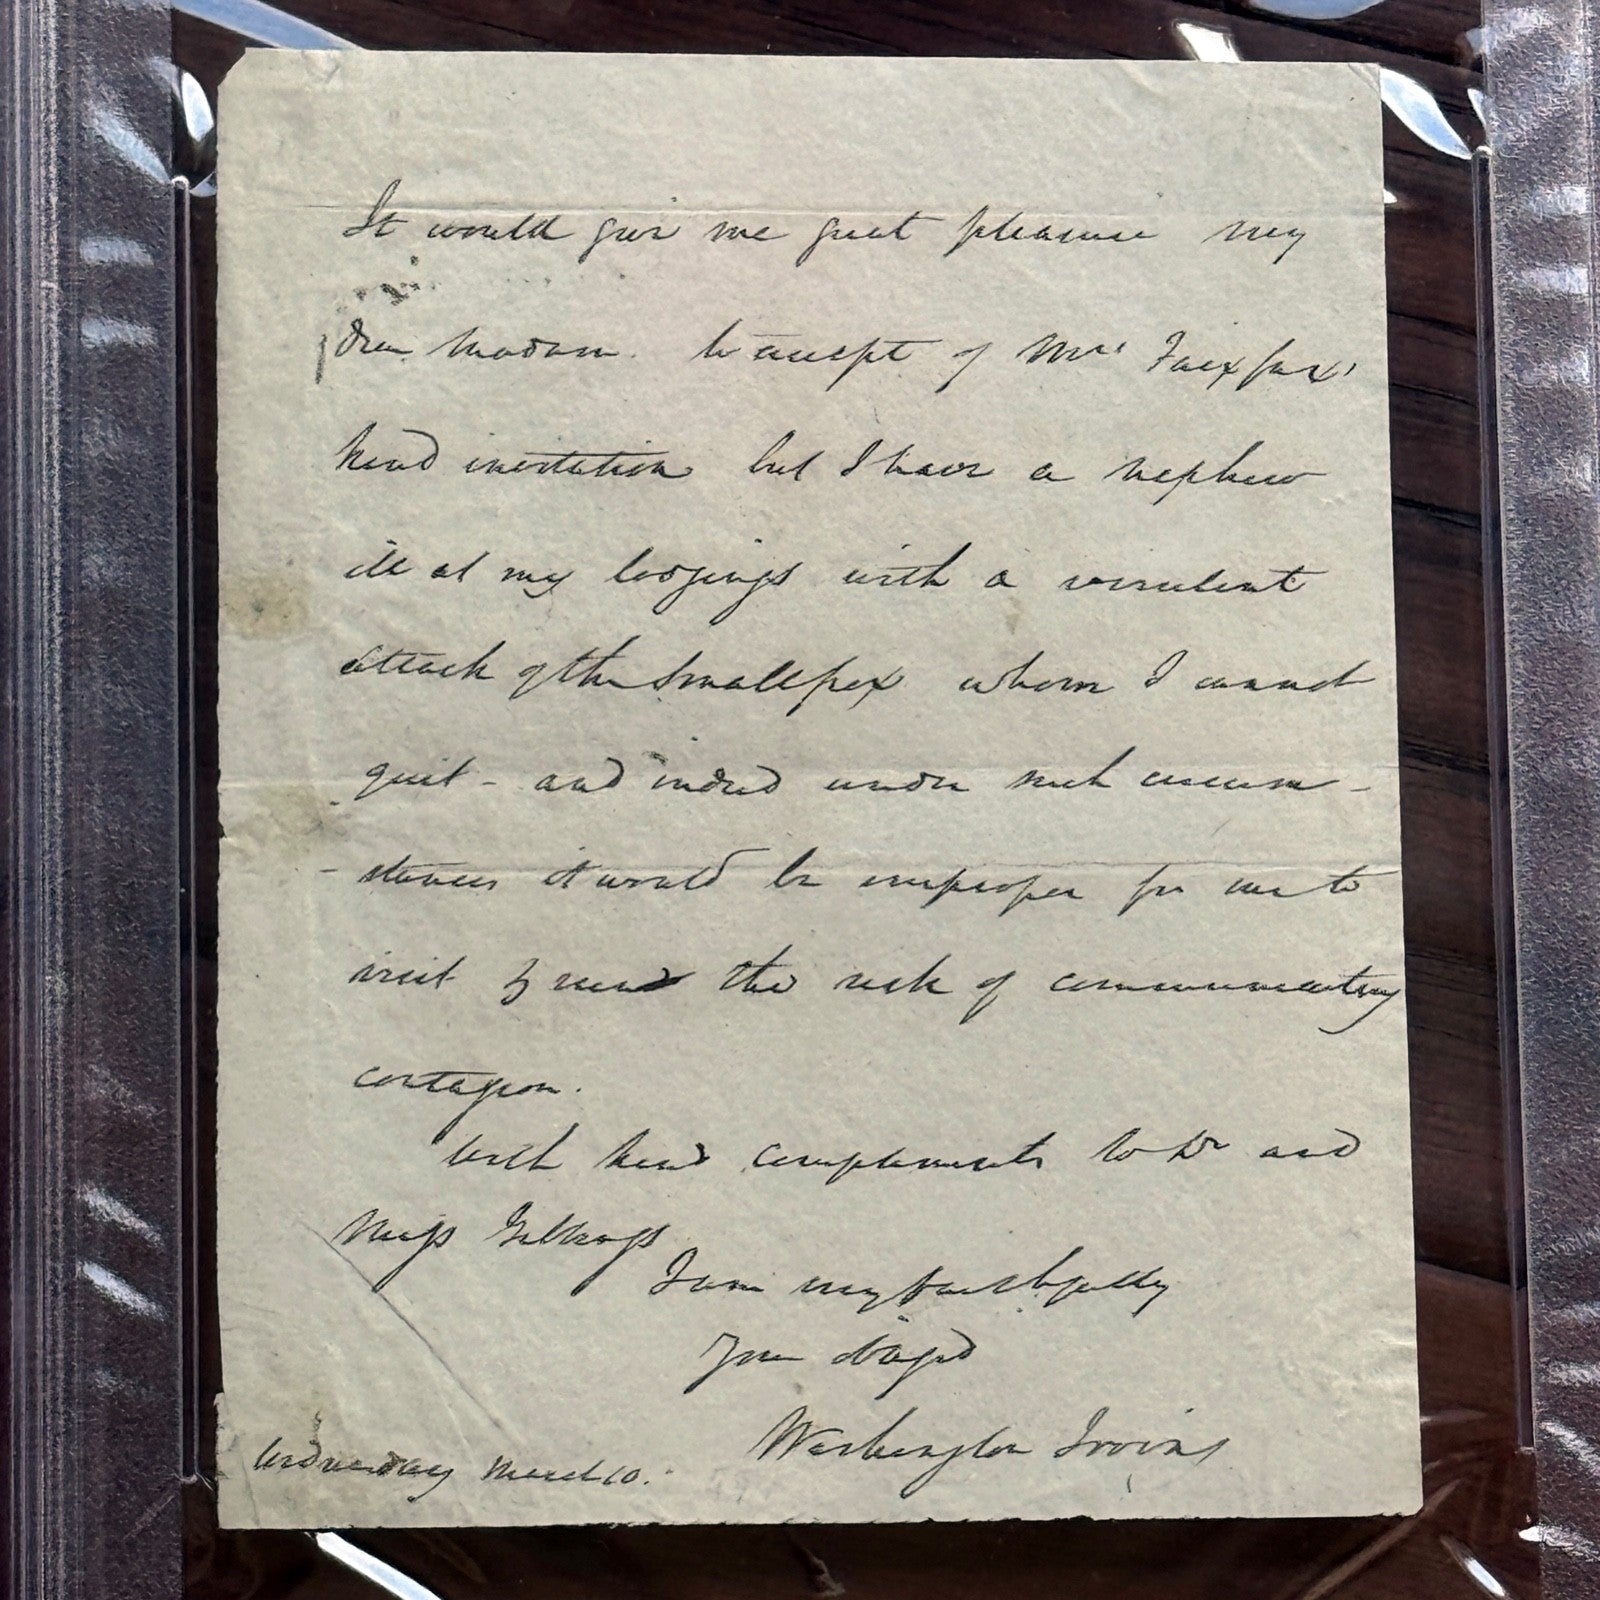 It would give me great pleasure my
dear Madam to accept of Mrs Fairfax'
kind invitation but I have a nephew
ill at my lodgings with a virulent
attack of the small pox whom I cannot
quit - and indeed under such circum-
- stances it would be improper for me to
visit & run the risk of communicating
contagion.
With kind compliments to Dr and
Miss
I am my faithfully
Your obliged
Washington Irving
Wednesday March 10.